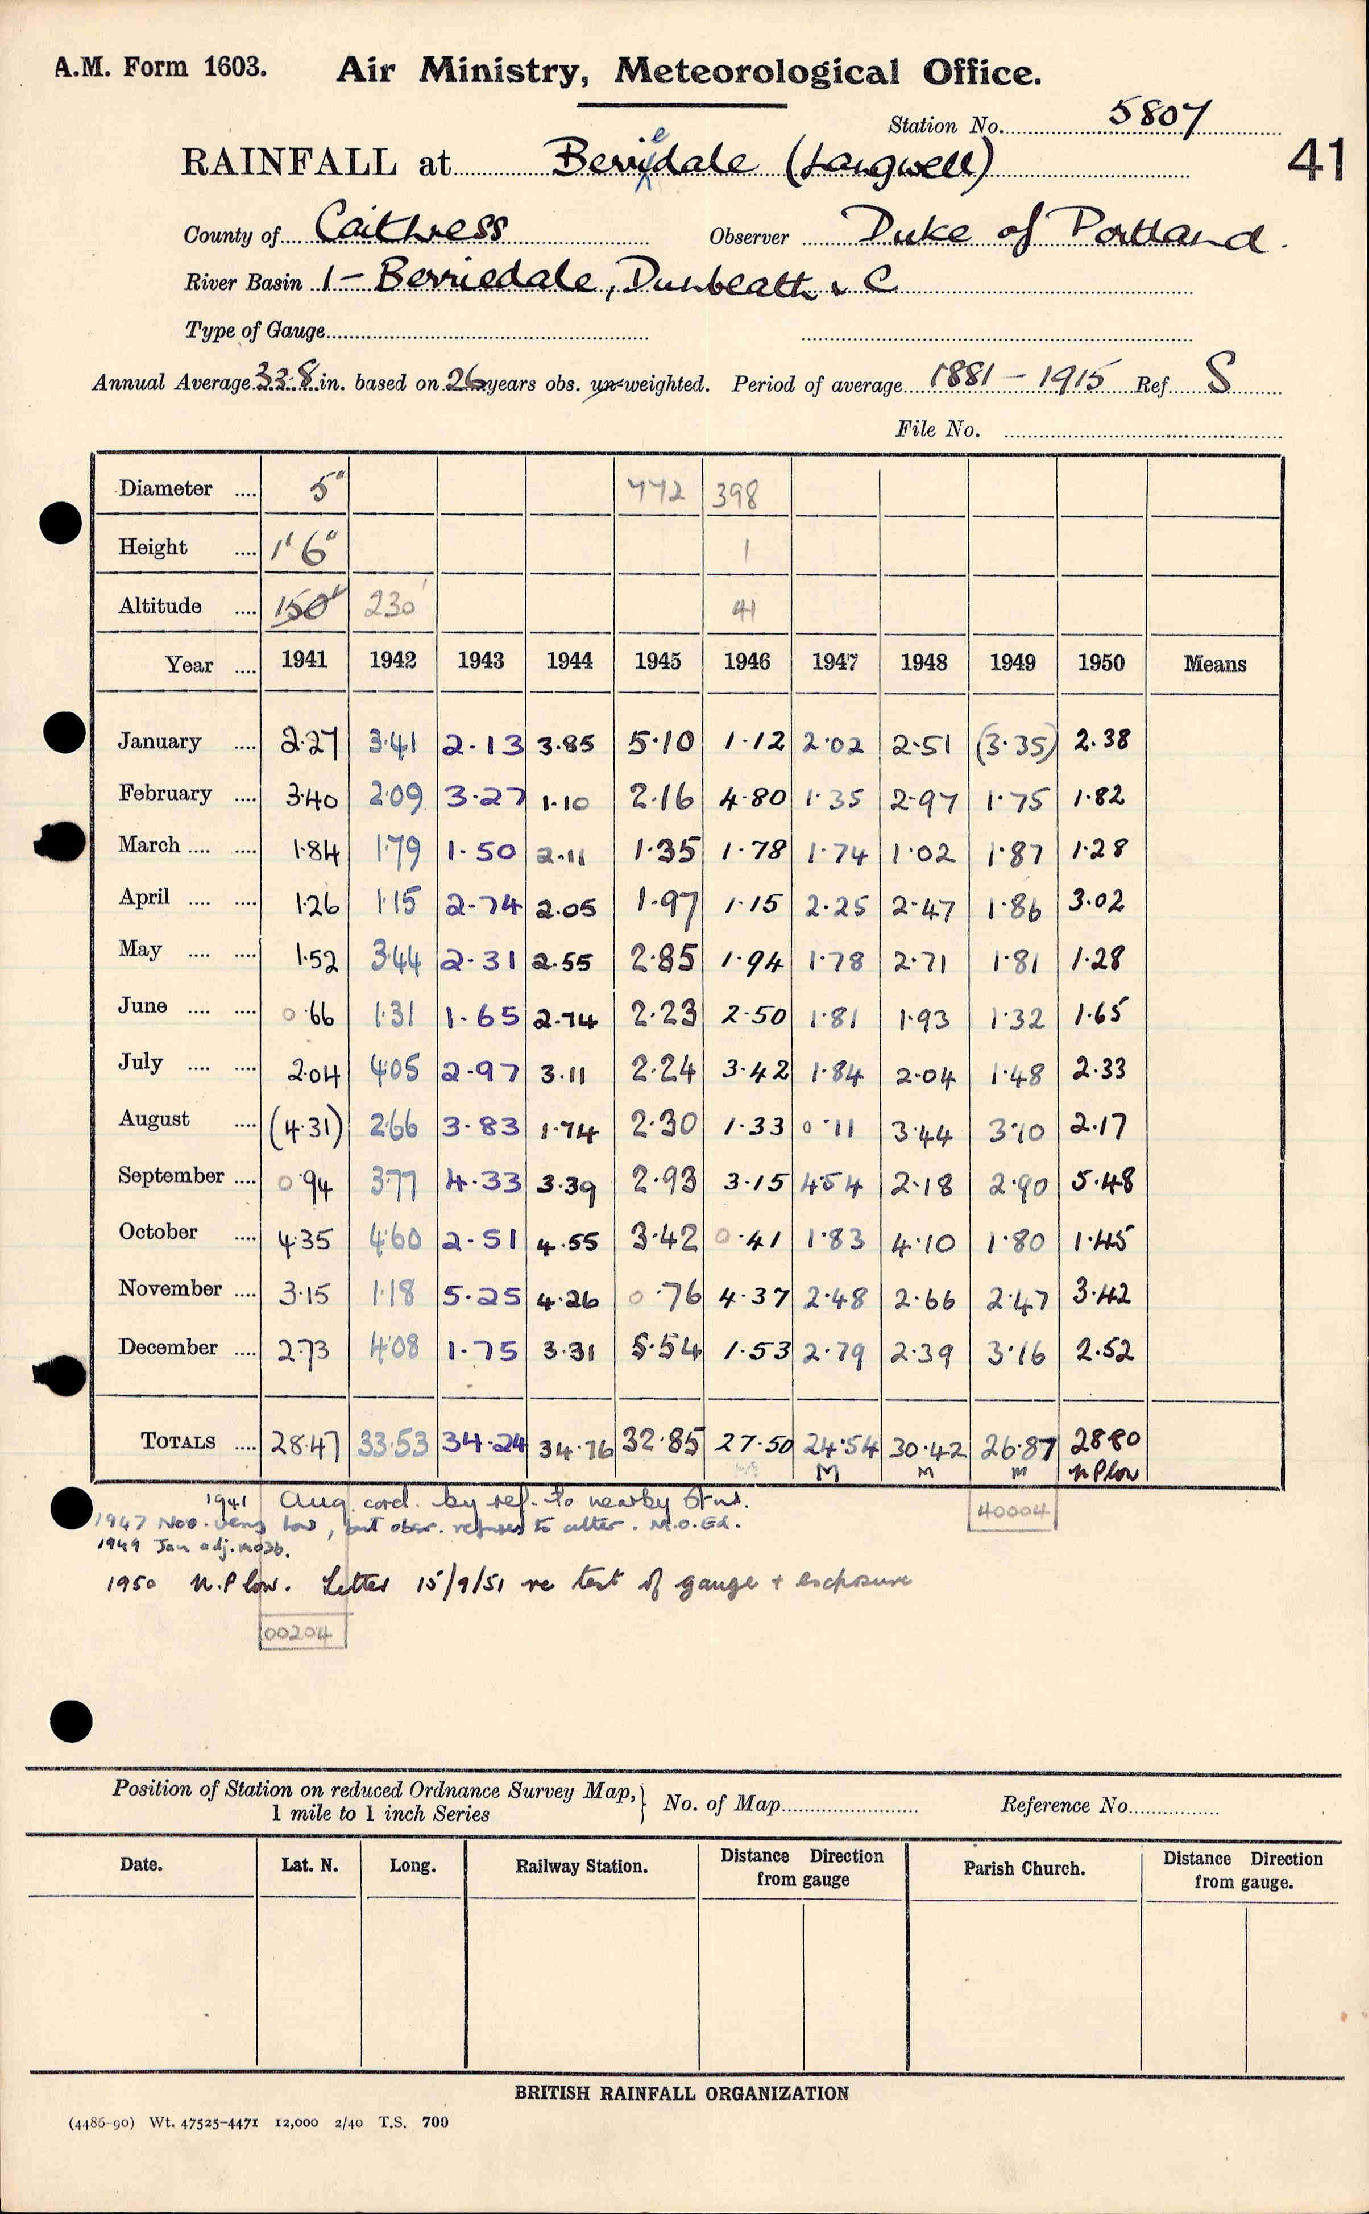 A.M. Form 1603. Air Ministry, Meteorological Office.
Station No. 5807
41
RAINFALL at Berriedale (Langwell)
County of Caithness Observer Duke of Portland.
River Basin 1 - Berriedale, Dunbeath & C
Type of Gauge
Annual Average 33.8 in. based on 26 years obs. un-weighted. Period of average 1881 - 1915 Ref. S
File No.
Diameter .... 5" 772 398
Height .... 1' 6" 1
Altitude .... 150' 230' 41
Year .... 1941 1942 1943 1944 1945 1946 1947 1948 1949 1950 Means
January .... 2.27 3.41 2.13 3.85 5.10 1.12 2.02 2.51 (3.35) 2.38
February .... 3.40 2.09 3.27 1.10 2.16 4.80 1.35 2.97 1.75 1.82
March .... .... 1.84 1.79 1.50 2.11 1.35 1.78 1.74 1.02 1.87 1.28
April .... .... 1.26 1.15 2.74 2.05 1.97 1.15 2.25 2.47 1.86 3.02
May .... .... 1.52 3.44 2.31 2.55 2.85 1.94 1.78 2.71 1.81 1.28
June .... .... 0.66 1.31 1.65 2.74 2.23 2.50 1.81 1.93 1.32 1.65
July .... .... 2.04 4.05 2.97 3.11 2.24 3.42 1.84 2.04 1.48 2.33
August .... (4.31) 2.66 3.83 1.74 2.30 1.33 0.11 3.44 3.10 2.17
September .... 0.94 3.77 4.33 3.39 2.93 3.15 4.54 2.18 2.90 5.48
October .... 4.35 4.60 2.51 4.55 3.42 0.41 1.83 4.10 1.80 1.45
November .... 3.15 1.18 5.25 4.26 0.76 4.37 2.48 2.66 2.47 3.42
December .... 2.73 4.08 1.75 3.31 5.54 1.53 2.79 2.39 3.16 2.52
TOTALS .... 28.47 33.53 34.24 34.76 32.85 27.50 24.54 30.42 26.87 28.80
M M M n P low
1941 Aug cord. by ref. to nearby Stns.
40004
1947 Nov. very low, but obsr. refuses to alter. M.O.Ed.
1949 Jan adj. mo3b.
1950 n.P low. Letter 15/9/51 re test of gauge + enclosure
00204
Position of Station on reduced Ordnance Survey Map, 1 mile to 1 inch Series } No. of Map Reference No.
Date. Lat. N. Long. Railway Station. Distance Direction from gauge Parish Church. Distance Direction from gauge.
BRITISH RAINFALL ORGANIZATION
(4486-90) Wt. 47525-4471 12,000 2/40 T.S. 700